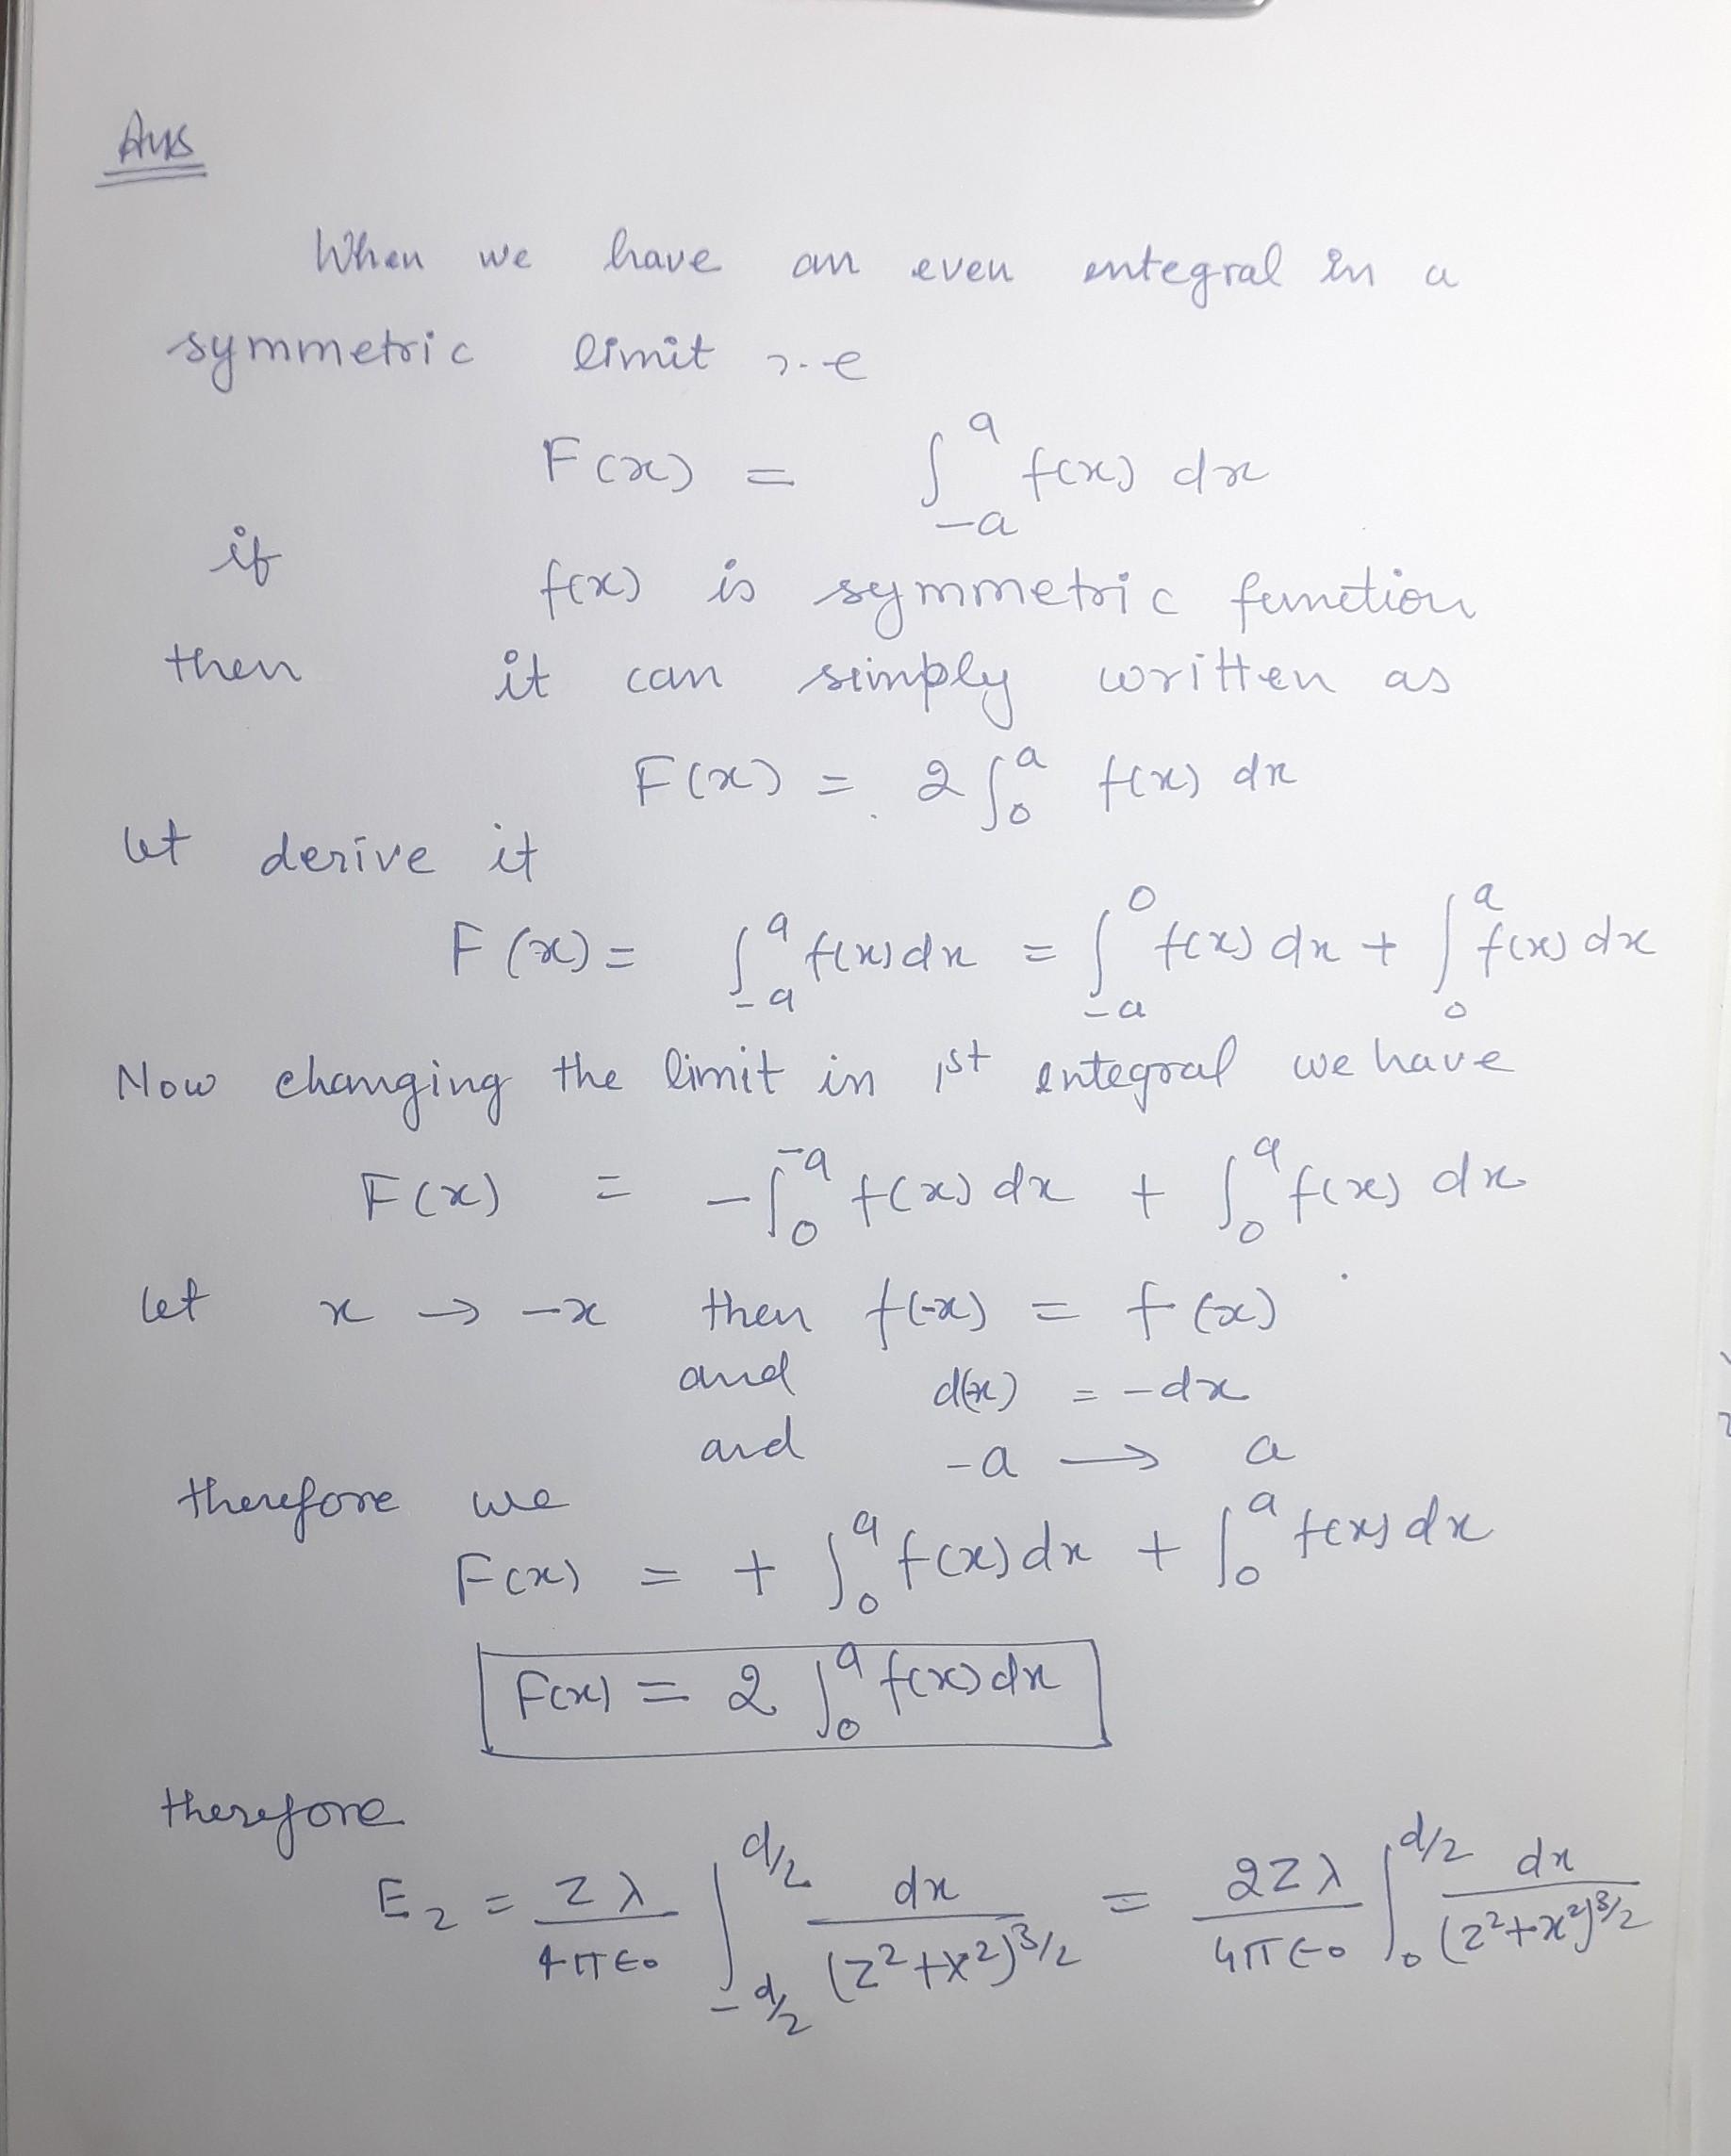 Ans
When we have an even integral in a
symmetric limit i.e
F(x) = ∫_{-a}^{a} f(x) dx
if f(x) is symmetric function
then it can simply written as
F(x) = 2 ∫_0^a f(x) dx
let derive it
F(x) = ∫_{-a}^{a} f(x) dx = ∫_{-a}^{0} f(x) dx + ∫_0^a f(x) dx
Now changing the limit in 1st integral we have
F(x) = -∫_0^{-a} f(x) dx + ∫_0^a f(x) dx
let x → -x then f(-x) = f(x)
and d(-x) = -dx
and -a → a
therefore we
F(x) = + ∫_0^a f(x) dx + ∫_0^a f(x) dx
F(x) = 2 ∫_0^a f(x) dx
therefore
E_z = zλ/4πε₀ ∫_{-d/2}^{d/2} dx/(z²+x²)^{3/2} = 2zλ/4πε₀ ∫_0^{d/2} dx/(z²+x²)^{3/2}